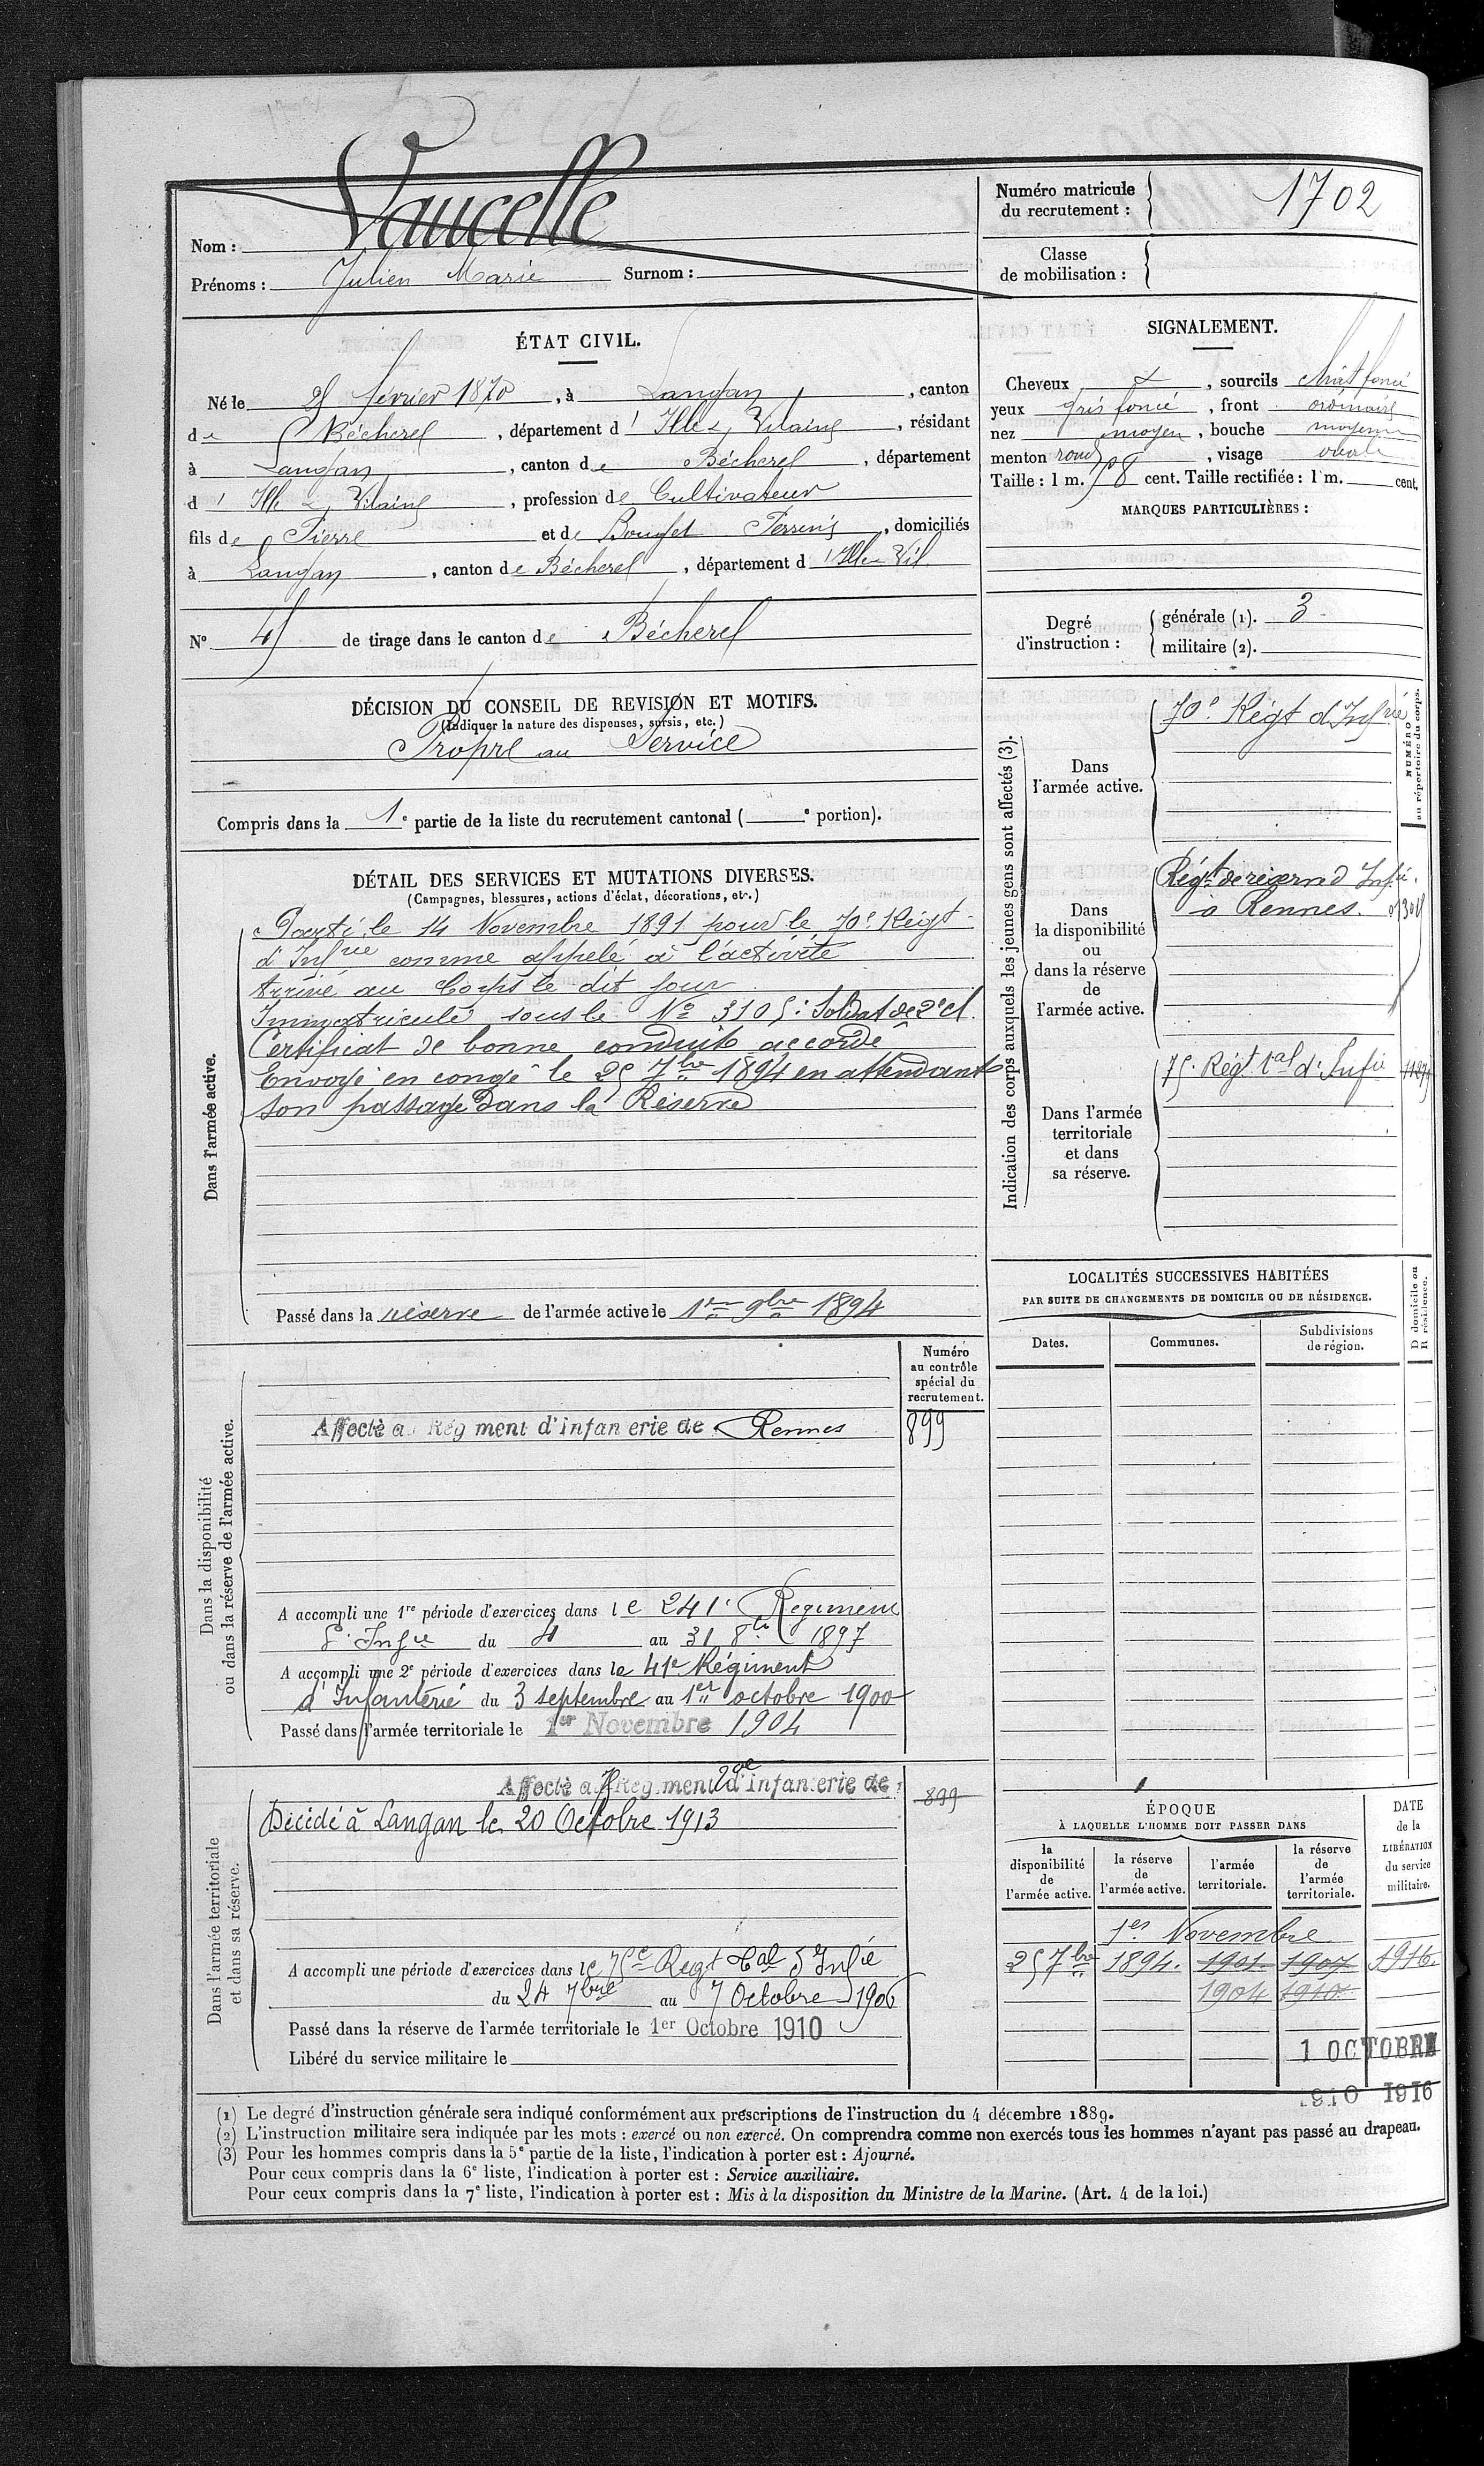 Nom : Vaucelle
Prénoms : Julien Marie Surnom :
Numéro matricule du recrutement : 1702
Classe de mobilisation :
ÉTAT CIVIL.
Né le février 1870, à Langan, canton
de Bécherel, département d'Ille & Vilaine, résidant
à Langan, canton de Bécherel, département
d'Ille & Vilaine, profession de Cultivateur
fils de Pierre et de Perrine, domiciliés
à Langan, canton de Bécherel, département d'Ille & Vil.
N° de tirage dans le canton de Bécherel
SIGNALEMENT.
Cheveux &, sourcils chât foncé
yeux gris foncé, front ordinaire
nez moyen, bouche moyenne
menton rond, visage ovale
Taille : 1 m. 708 cent. Taille rectifiée : 1 m. cent.
MARQUES PARTICULIÈRES :
Degré d'instruction : générale (1). 3
militaire (2).
DÉCISION DU CONSEIL DE REVISION ET MOTIFS.
(Indiquer la nature des dispenses, sursis, etc.)
Propre au Service
Compris dans la 1e partie de la liste du recrutement cantonal ( e portion).
DÉTAIL DES SERVICES ET MUTATIONS DIVERSES.
(Campagnes, blessures, actions d'éclat, décorations, etc.)
Dans l'armée active.
Parti le 14 Novembre 1891 pour le 70e Régt
d'Infrie comme appelé à l'activité
Arrivé au Corps le dit jour
Immatriculé sous le N° 3105. Soldat de 2e cl.
Certificat de bonne conduite accordé
Envoyé en congé le 25 7bre 1894 en attendant
son passage dans la Réserve
Passé dans la réserve de l'armée active le 1er 9bre 1894
Indication des corps auxquels les jeunes gens sont affectés (3).
NUMÉRO au répertoire du corps.
Dans l'armée active.
70e Régt d'Infrie
Dans la disponibilité ou dans la réserve de l'armée active.
Régt de réserve d'Infie.
à Rennes.
Dans l'armée territoriale et dans sa réserve.
75e Régt tal d'Infie
LOCALITÉS SUCCESSIVES HABITÉES
PAR SUITE DE CHANGEMENTS DE DOMICILE OU DE RÉSIDENCE.
Dates. Communes. Subdivisions de région. D domicile ou R résidence.
Dans la disponibilité ou dans la réserve de l'armée active.
Numéro au contrôle spécial du recrutement.
Affecté a Rég ment d'infan erie de Rennes 899
A accompli une 1re période d'exercices dans le 241e Régiment
d'Infie du 4 au 31 8bre 1897
A accompli une 2e période d'exercices dans le 41e Régiment
d'Infanterie du 3 septembre au 1er octobre 1900
Passé dans l'armée territoriale le 1er Novembre 1904
Dans l'armée territoriale et dans sa réserve.
Affecté a Rég ment d'infanterie de 899
Décédé à Langan le 20 Octobre 1913
A accompli une période d'exercices dans le 75e Régt tal d'Infie
du 24 7bre au 7 Octobre 1906
Passé dans la réserve de l'armée territoriale le 1er Octobre 1910
Libéré du service militaire le
ÉPOQUE
À LAQUELLE L'HOMME DOIT PASSER DANS
la disponibilité de l'armée active. la réserve de l'armée active. l'armée territoriale. la réserve de l'armée territoriale.
DATE de la LIBÉRATION du service militaire.
1er Novembre
25 7bre 1894. 1901 1907 1916.
1904 1910
1 OCTOBRE
1910 1916
(1) Le degré d'instruction générale sera indiqué conformément aux prescriptions de l'instruction du 4 décembre 1889.
(2) L'instruction militaire sera indiquée par les mots : exercé ou non exercé. On comprendra comme non exercés tous les hommes n'ayant pas passé au drapeau.
(3) Pour les hommes compris dans la 5e partie de la liste, l'indication à porter est : Ajourné.
Pour ceux compris dans la 6e liste, l'indication à porter est : Service auxiliaire.
Pour ceux compris dans la 7e liste, l'indication à porter est : Mis à la disposition du Ministre de la Marine. (Art. 4 de la loi.)